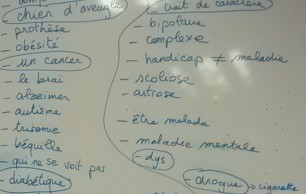 chien d'aveugle
- prothèse
- obésité
- un cancer
- le brai
- alzeimer
- autisme
- trisomie
- béquille
- qui ne se voit pas
- diabétique
trait de caractère
- bipolaire
- complexe
- handicap ≠ maladie
- scoliose
- artrose
- être malade
- maladie mentale
- dys
- drogue → cigarette